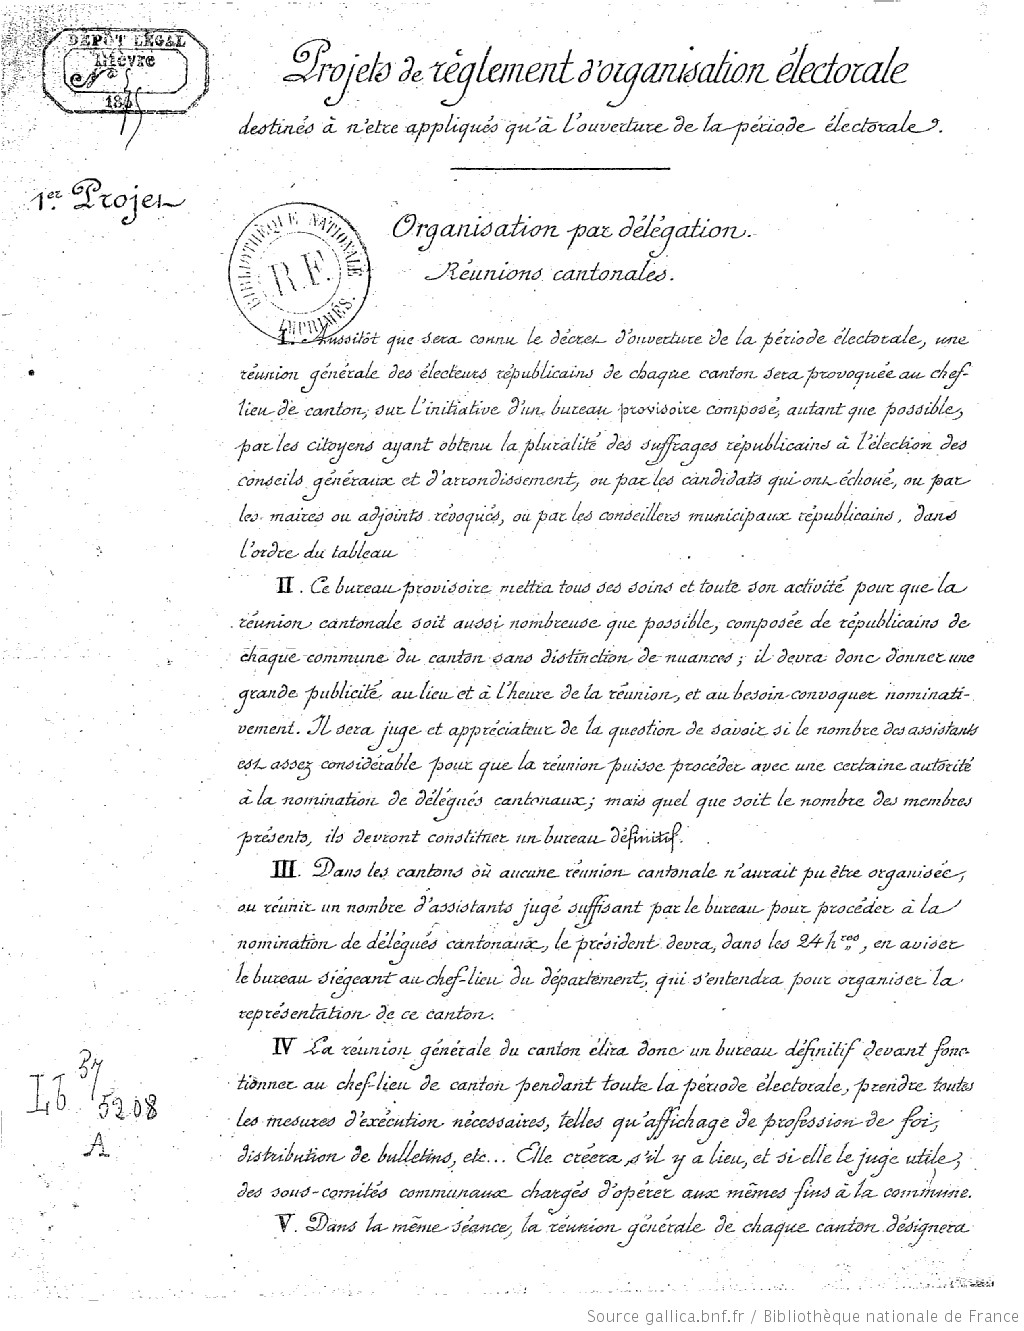 DÉPÔT LÉGAL
Nièvre
N° 75
Projets de règlement d'organisation électorale
destinés à n'etre appliqués qu'à l'ouverture de la période électorale.
1er Projet
BIBLIOTHÈQUE NATIONALE
R.F.
IMPRIMÉS.
Organisation par délégation.
Réunions cantonales.
I. Aussitôt que sera connu le décret d'ouverture de la période électorale, une
réunion générale des électeurs républicains de chaque canton sera provoquée au chef-
lieu de canton, sur l'initiative d'un bureau provisoire composé, autant que possible,
par les citoyens ayant obtenu la pluralité des suffrages républicains à l'élection des
conseils généraux et d'arrondissement, ou par les candidats qui ont échoué, ou par
les maires ou adjoints révoqués, ou par les conseillers municipaux républicains, dans
l'ordre du tableau
II. Ce bureau provisoire mettra tous ses soins et toute son activité pour que la
réunion cantonale soit aussi nombreuse que possible, composée de républicains de
chaque commune du canton sans distinction de nuances; il devra donc donner une
grande publicité au lieu et à l'heure de la réunion, et au besoin convoquer nominati-
vement. Il sera juge et appréciateur de la question de savoir si le nombre des assistants
est assez considérable pour que la réunion puisse procéder avec une certaine autorité
à la nomination de délégués cantonaux; mais quel que soit le nombre des membres
présents, ils devront constituer un bureau définitif.
III. Dans les cantons où aucune réunion cantonale n'aurait pu être organisée,
ou réunir un nombre d'assistants jugé suffisant par le bureau pour procéder à la
nomination de délégués cantonaux, le président devra, dans les 24 hres, en aviser
le bureau siégeant au chef-lieu du département, qui s'entendra pour organiser la
représentation de ce canton.
IV La réunion générale du canton élira donc un bureau définitif devant fonc-
tionner au chef-lieu de canton pendant toute la période électorale, prendre toutes
les mesures d'exécution nécessaires, telles qu'affichage de profession de foi,
distribution de bulletins, etc... Elle créera, s'il y a lieu, et si elle le juge utile,
des sous-comités communaux chargés d'opérer aux mêmes fins à la commune.
V. Dans la même séance, la réunion générale de chaque canton désignera
Lb 57
5208
A
Source gallica.bnf.fr / Bibliothèque nationale de France